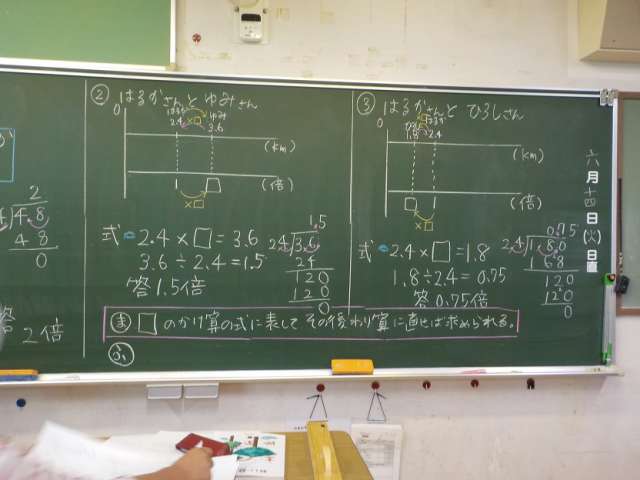 2
4.8
48
0
2倍
② はるかさんとゆみさん
はるか ゆみ
2.4 3.6
×□
0
(km)
1 □
(倍)
×□
式 2.4×□=3.6
3.6÷2.4=1.5
答 1.5倍
1.5
2.4 3.6
24
120
120
0
③ はるかさんとひろしさん
×□
1.8 2.4
0
(km)
□ 1
(倍)
×□
式 2.4×□=1.8
1.8÷2.4=0.75
答 0.75倍
0.75
2.4 1.80
168
120
120
0
ま □のかけ算の式に表してその後わり算に直せば求められる。
ふ
六月十四日(火)日直